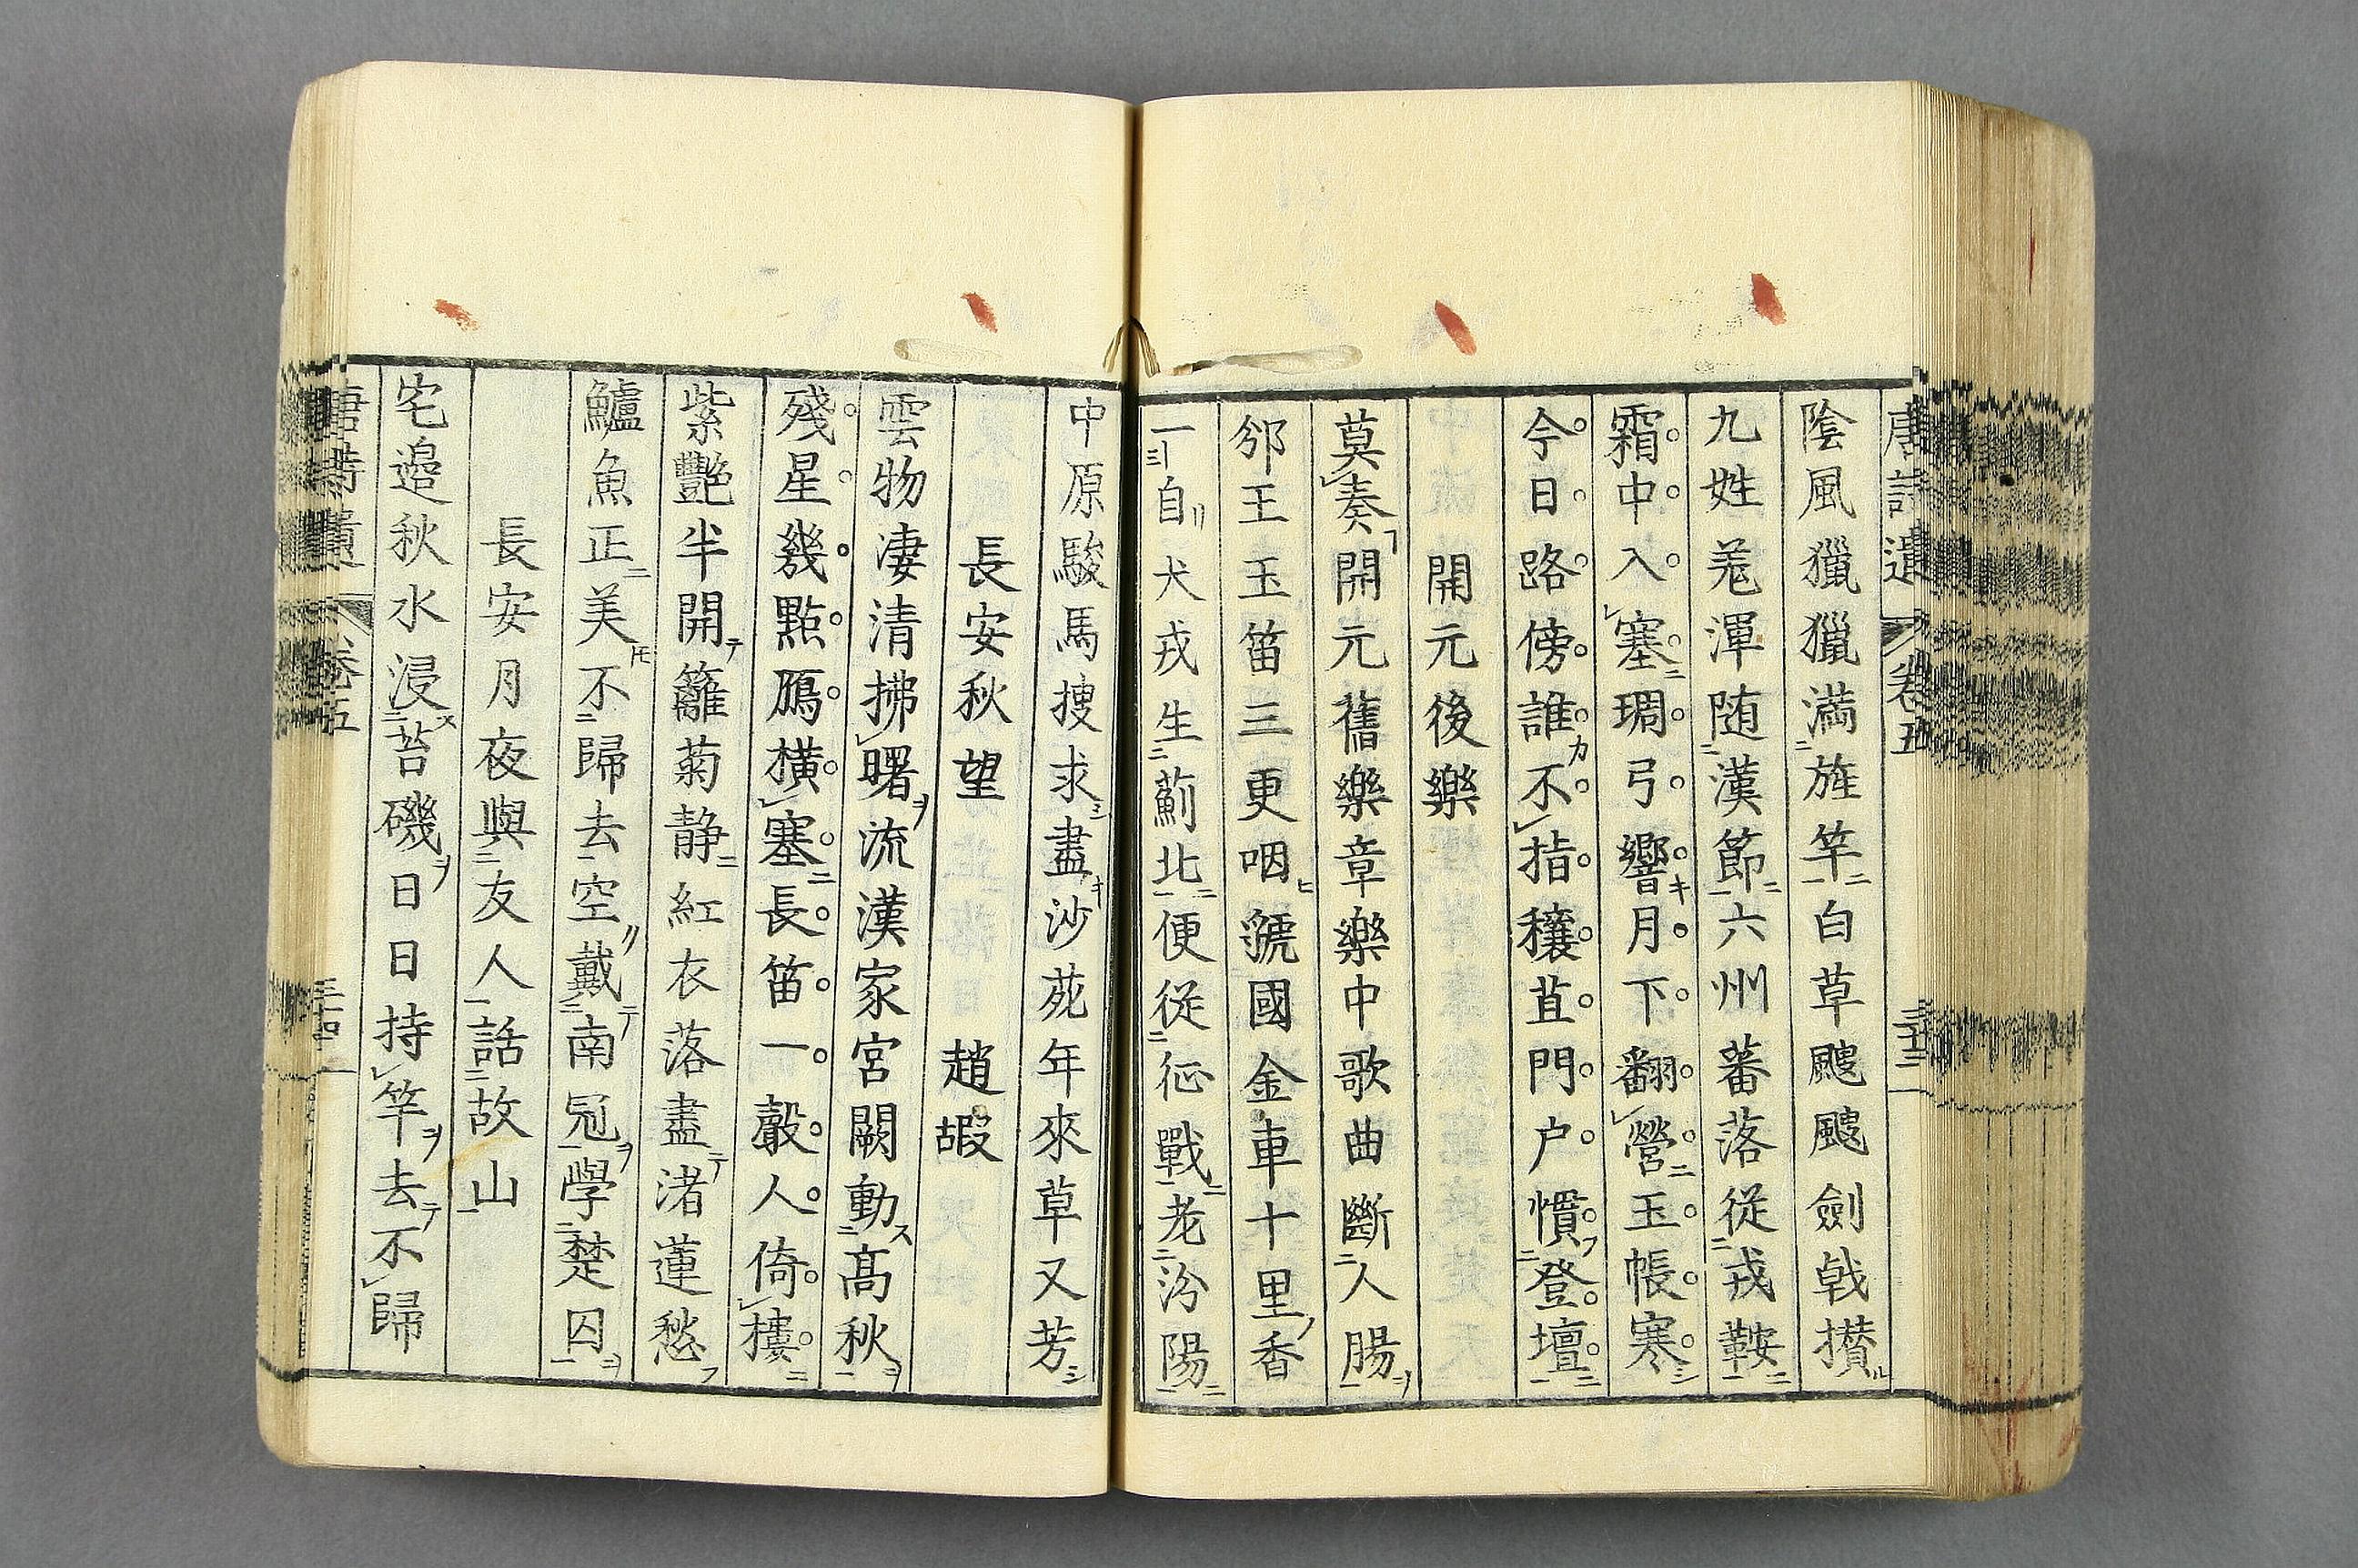 陰風獵獵満旌竿白草颼颼劍戟攅
九姓羗渾随漢節六州蕃落從戎鞍
霜中入塞琱弓響月下翻營玉帳寒
今日路傍誰不指穰苴門户慣登壇
開元後樂
莫奏開元舊樂章樂中歌曲斷人腸
邠王玉笛三更咽虢國金車十里香
一自犬戎生薊北便從征戰老汾陽
中原駿馬搜求盡沙苑年來草又芳
長安秋望 趙嘏
雲物淒清拂曙流漢家宮闕動髙秋
殘星幾點鴈橫塞長笛一聲人倚樓
紫艷半開籬菊静紅衣落盡渚蓮愁
鱸魚正美不歸去空戴南冠學楚囚
長安月夜與友人話故山
宅邉秋水浸苔磯日日持竿去不歸
唐詩遺 卷五 三十三
唐詩遺 卷五 三十四